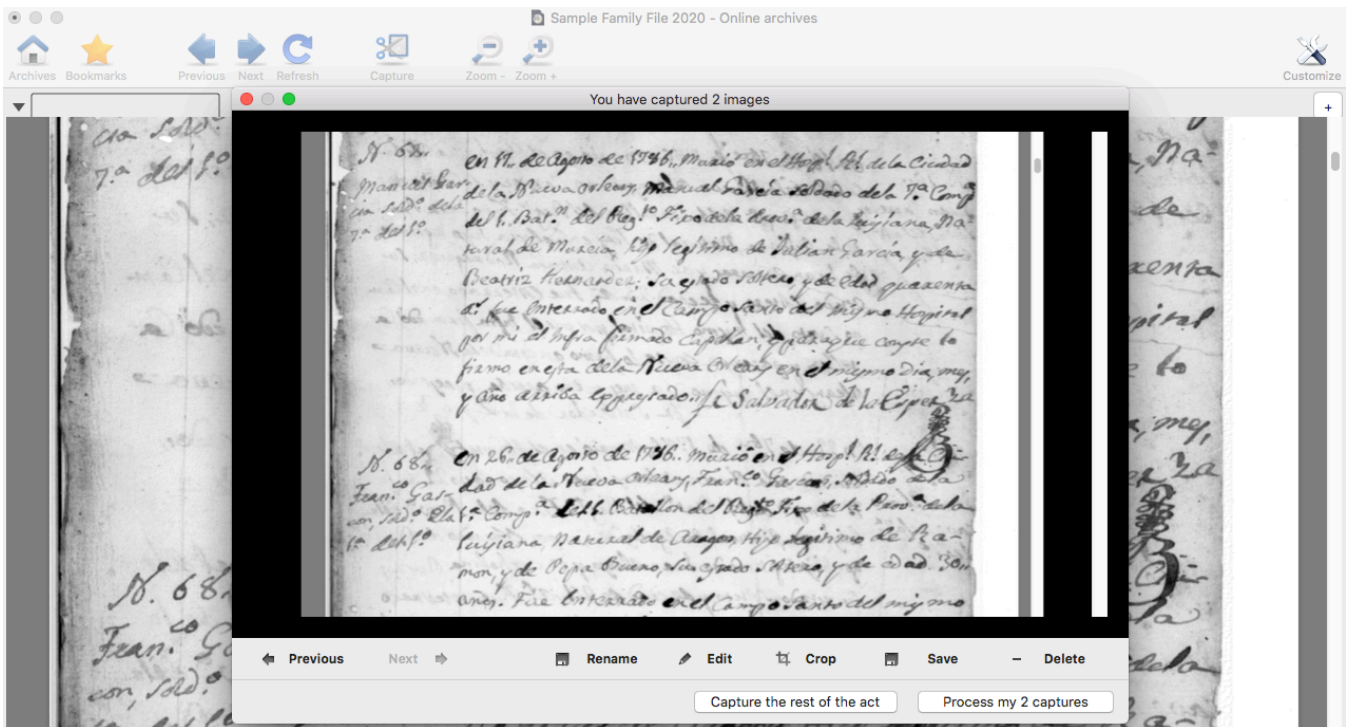 Sample Family File 2020 - Online archives
Archives Bookmarks Previous Next Refresh Capture Zoom - Zoom + Customize
You have captured 2 images
+
cia sold.º
7.ª del 1.º
N. 68.
Fran.co
con, sold.º
Manuel Gar-
cia sold.º dela
7.ª del 1.º
en 17. de Agosto de 1786.. murió en el Hosp.l R.l de la Ciudad
dela Nueva Orleans, Manual Garcia soldado dela 7.ª Comp.ª
del 1. Bat.n del Reg.to Fixo dela dela Luisiana, Na-
tural de Murcia, hijo legitimo de Julian Garcia, y de
Beatriz Hernandez; su estado soltero, y de edad quarenta
a.s fue enterrado en el Campo santo del mismo Hospital
por mi el infra firmado Capellan, y paraque conste lo
firmo en esta dela Nueva Orleans en el mismo dia, mes,
y año arriba expresado.. Salvador de la
N. 68..
Fran.co Gar-
con, sold.º
en 26.. de Agosto de 1786.. murió en el Hosp.l R.l dela Ciu-
dad de la Nueva Orleans, Fran.co Garcon, soldado dela
Comp.ª del 1. Batallon del Reg.to Fixo de la Prov.ª dela
Luisiana, Natural de Aragon, Hijo legitimo de Ra-
mon, y de Pepa Bueno, su estado soltero, y de edad 30..
años. Fue enterrado en el Campo santo del mismo
Na-
de
xenta
pital
lo
mes,
dela
Previous Next Rename Edit Crop Save Delete
Capture the rest of the act Process my 2 captures